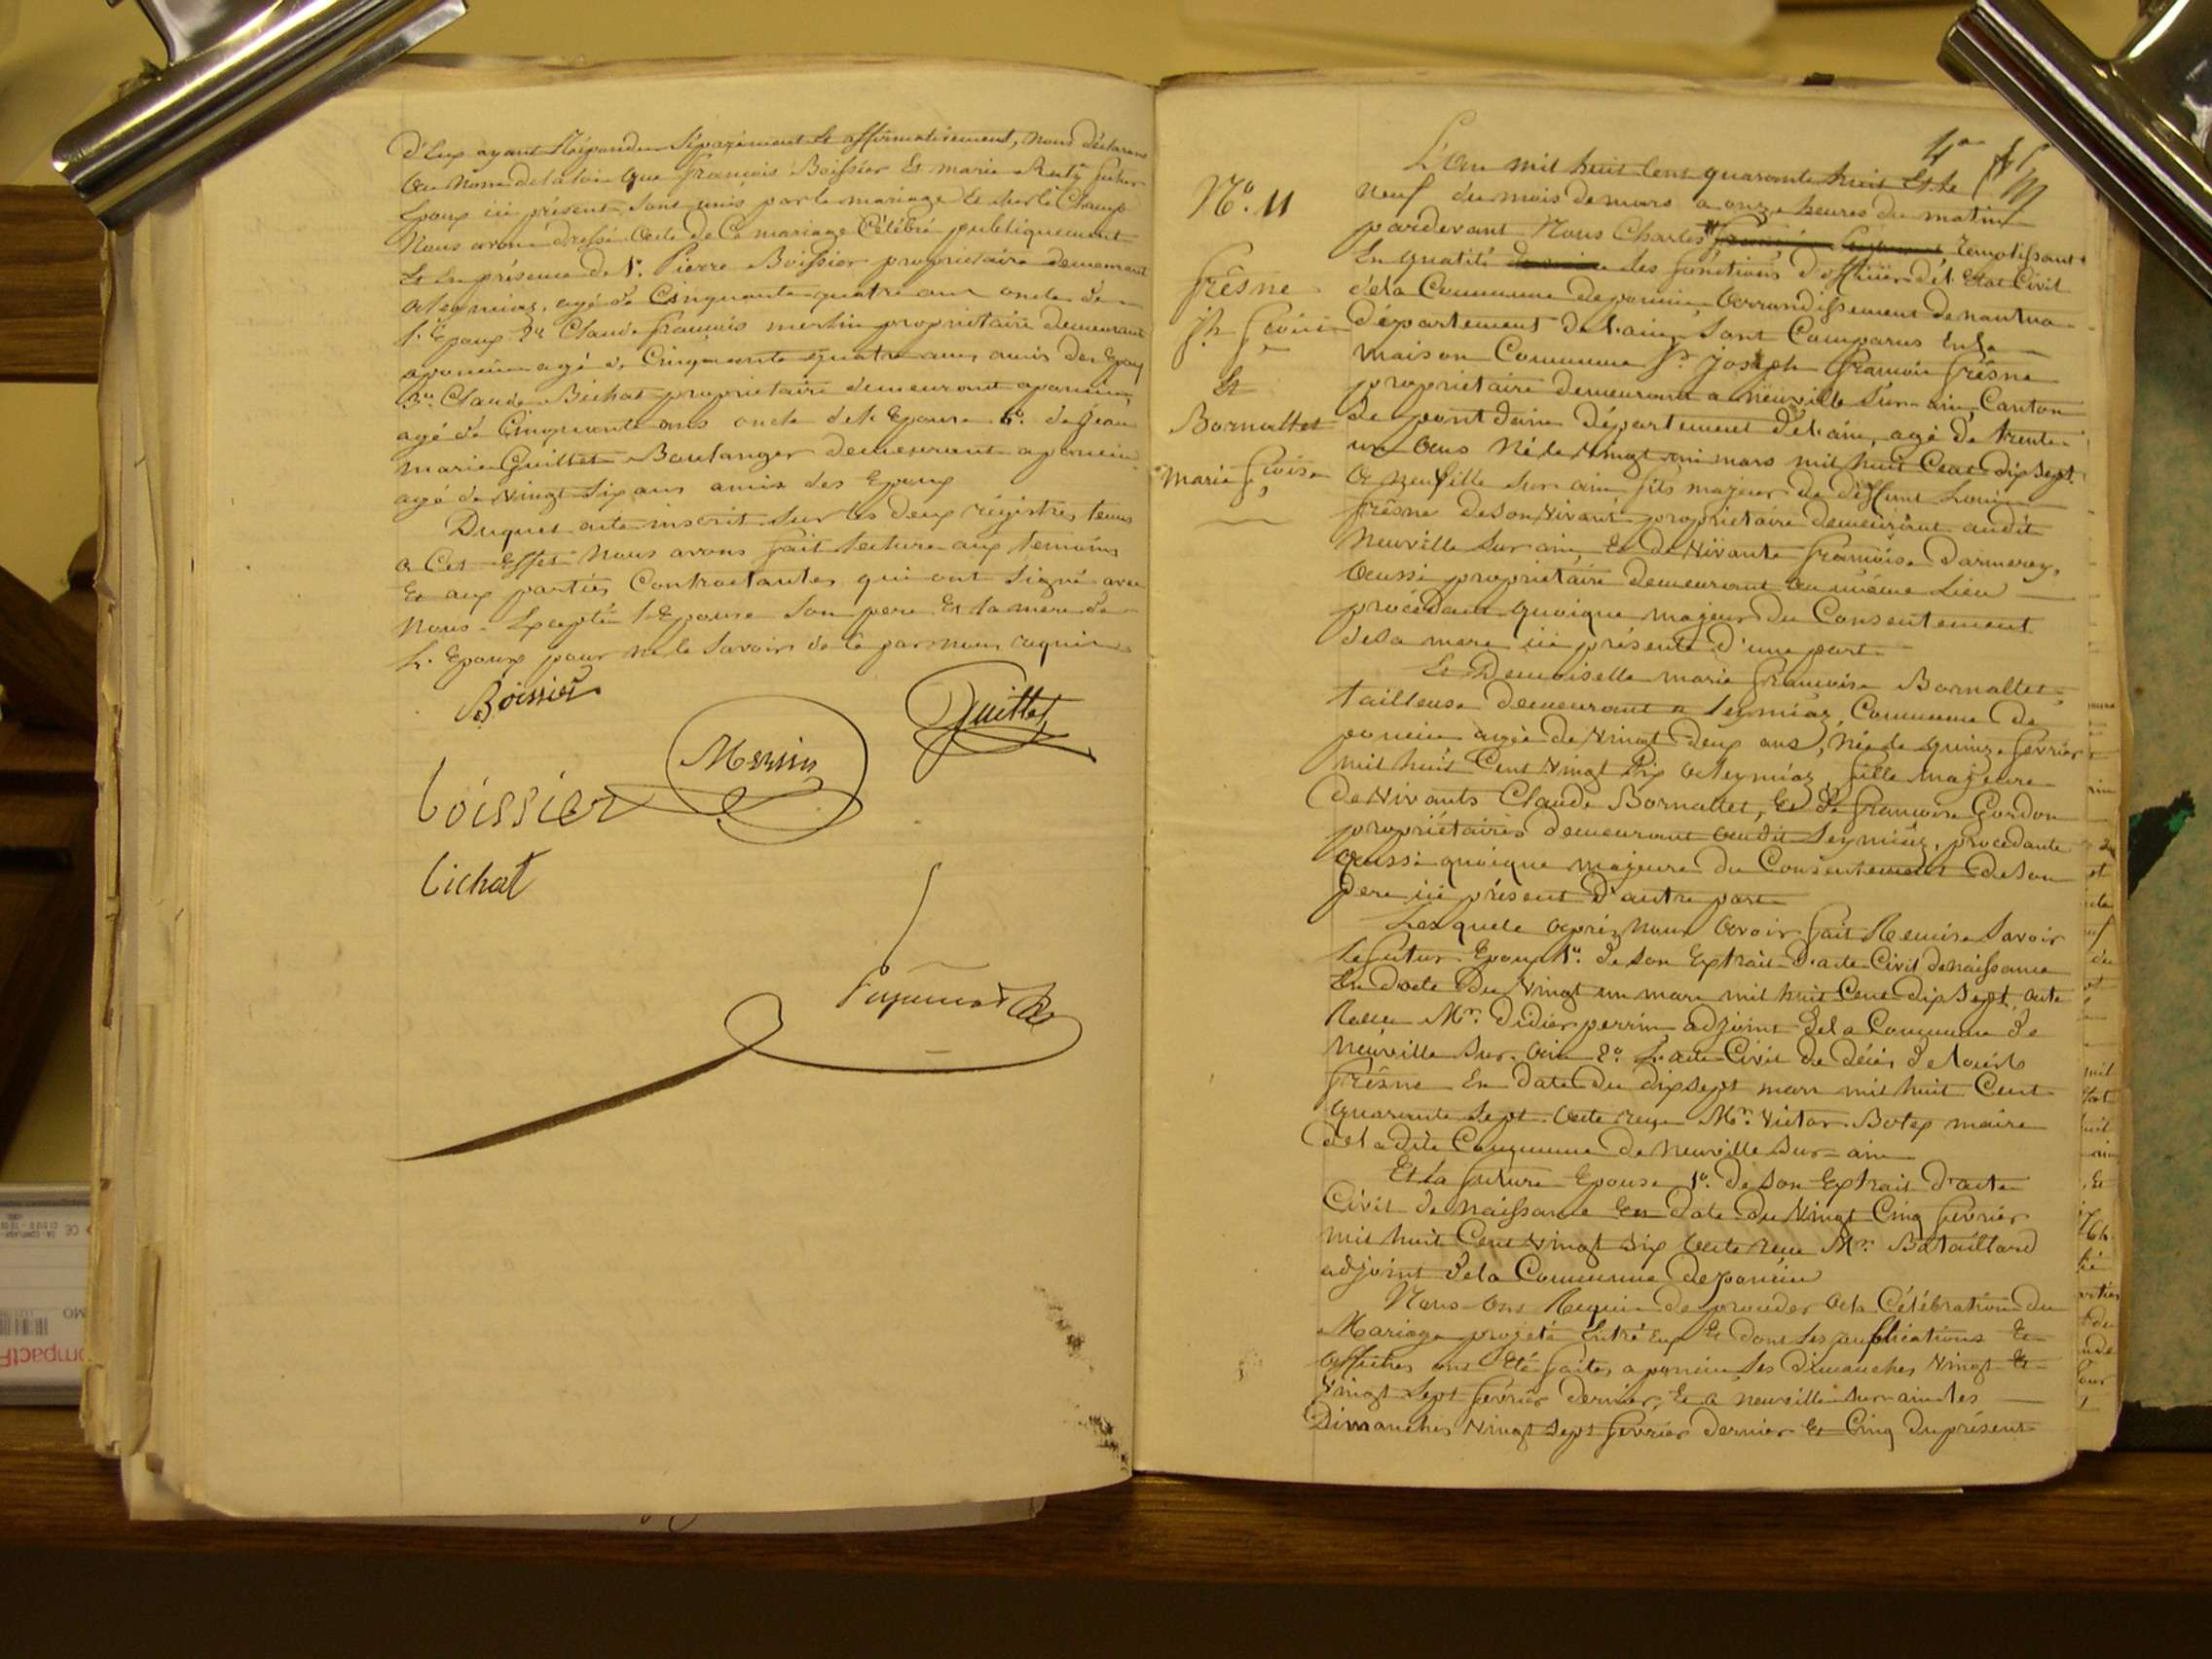 D'Eux ayant Répondu Séparément et affirmativement, Nous déclarons
au Nom de la loi que François Boissier et marie Ruty futur
Epoux ici présent, sont unis par le mariage et sur le Champ
Nous avons dressé acte de Ce mariage Célébré publiquement
Et En présence de 1º. Pierre Boissier propriétaire demeurant
a leymiaz, agé de Cinquante quatre ans oncle de
l'Epoux 2º Claude françois merlin propriétaire demeurant
a poncin agé de Cinquante quatre ans amis des Epoux
3º. Claude Bichat propriétaire demeurant a poncin,
agé de Cinquante ans oncle de l'Epouse 4º. de Jean
marie Guillet Boulanger demeurant a poncin
agé de Vingt Six ans amis des Epoux
Duquel acte inscrit sur les deux régistres tenus
a Cet Effet Nous avons fait lecture aux temoins
Et aux parties Contractantes qui ont Signé avec
Nous. Excepté l'Epouse Son pere Et la mere de
L'Epoux pour ne le Savoir de ce par nous requis
Boissier
Guillet
Merlin
boissier
bichat
Nº. 11
fresne
jh fçois
Et
Bornallet
Marie fçoise
L'An mil huit Cent quarante huit Et le
neuf du mois de mars a onze heures du matin
pardevant Nous Charles remplissant
En qualité des fonctions d'officier de l'Etat Civil
de la Commune de poncin, Arrondissement de nantua
Département de l'ain, Sont Comparus En la
maison Commune Sr. joseph François frêsne
propriétaire demeurant a neuville Sur-ain, Canton
de pont dain Département de l'ain, agé de trente
un ans Né le Vingt un mars mil huit Cent dix Sept.
a neuville Sur ain, fils majeur de deffunt Louis
frêsne de Son Vivant propriétaire demeurant audit
Neuville Sur ain, Et de Vivante françoise Darmerey,
aussi propriétaire demeurant au même Lieu
procédant quoique majeur du Consentement
de Sa mere ici présente d'une part
Et Demoiselle marie françoise Bornallet
tailleuse demeurant a leymiaz, Commune de
poncin agée de Vingt Deux ans, Née le quinze fevrier
mil huit Cent Vingt Six a leymiaz, fille majeure
de Vivants Claude Bornallet, Et de françoise Gordon
propriétaires demeurant audit leymiaz, procédante
aussi quoique majeure du Consentement de Son
pere ici présent D'autre part
Lesquels après nous avoir fait Remise Savoir
Le futur Epoux 1º. de Son Extrait d'acte Civil de naissance
En date du Vingt un mars mil huit Cent dix Sept, acte
Reçu Mr. Didier perrin adjoint de la Commune de
Neuville Sur. ain 2º. L'acte Civil de décès de Louis
frêsne En date du dix Sept mars mil huit Cent
quarante Sept. acte reçu Mr. Victor Botex maire
de la dite Commune de Neuville Sur-ain
Et la future Epouse 1º. de Son Extrait d'acte
Civil de naissance En date du Vingt Cinq fevrier
mil huit Cent Vingt Six acte reçu Mr. Bataillard
adjoint de la Commune de poncin
Nous ont Requis de procéder a la Célébration du
Mariage projeté Entre Eux Et dont les publications Et
affiches ont Eté faites a poncin les dimanches Vingt Et
Vingt Sept fevrier dernier, Et a neuville Sur ain les
Dimanches Vingt Sept fevrier dernier Et Cinq du présent